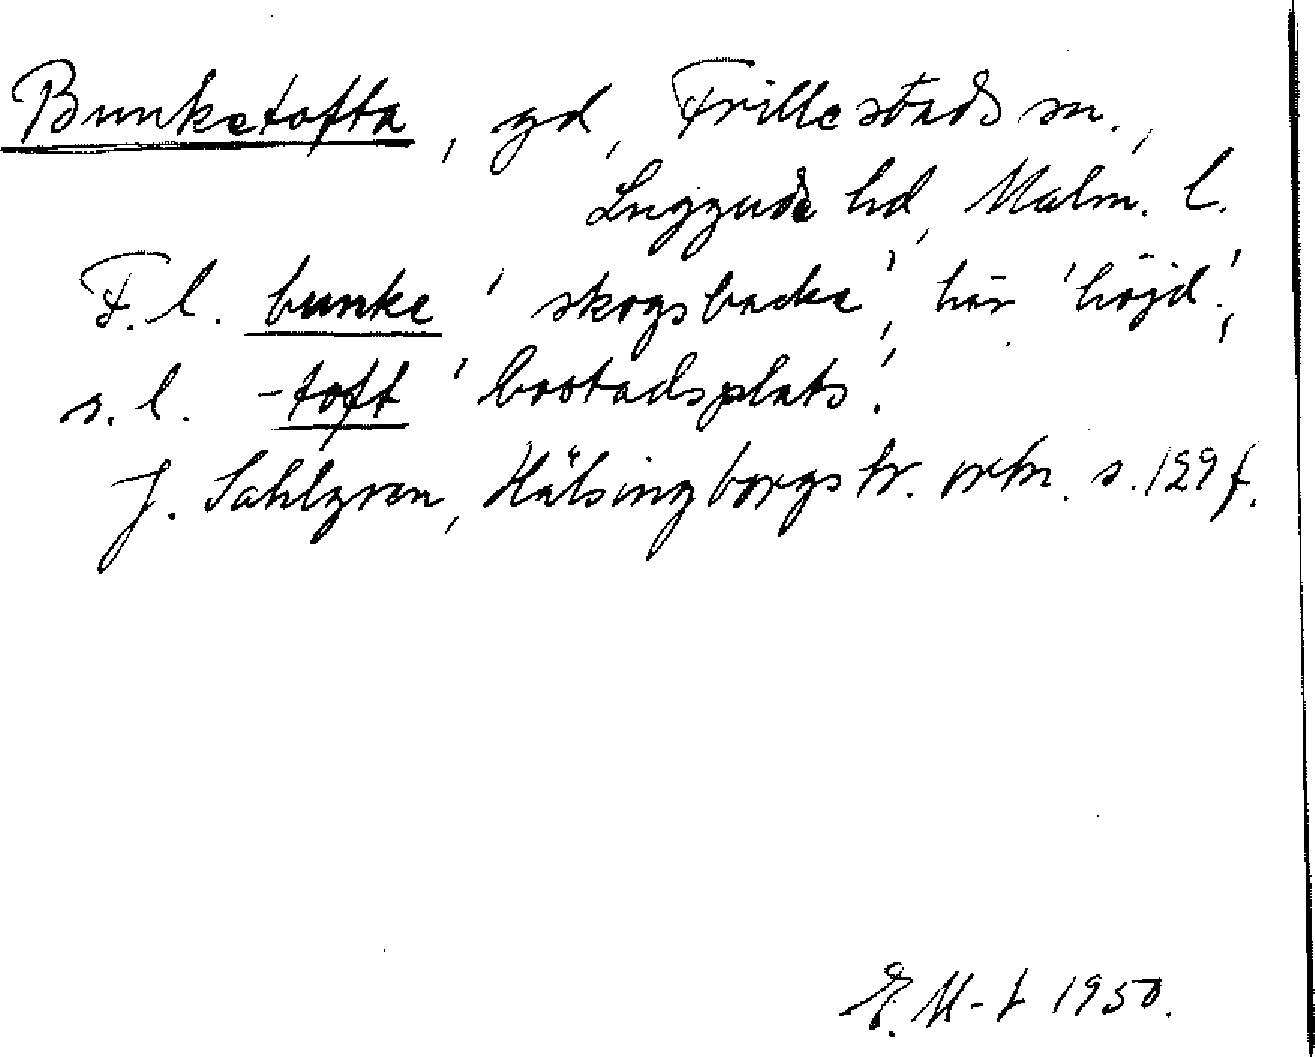 Bunketofta, gd, Frillestads sn.,
Luggude hd, Malm. l.
F.l. bunke 'skogsbacke', här 'höjd';
s.l. -toft 'bostadsplats'.
J. Sahlgren, Hälsingborgstr. ortn. s. 129 f.
E. M-t 1950.